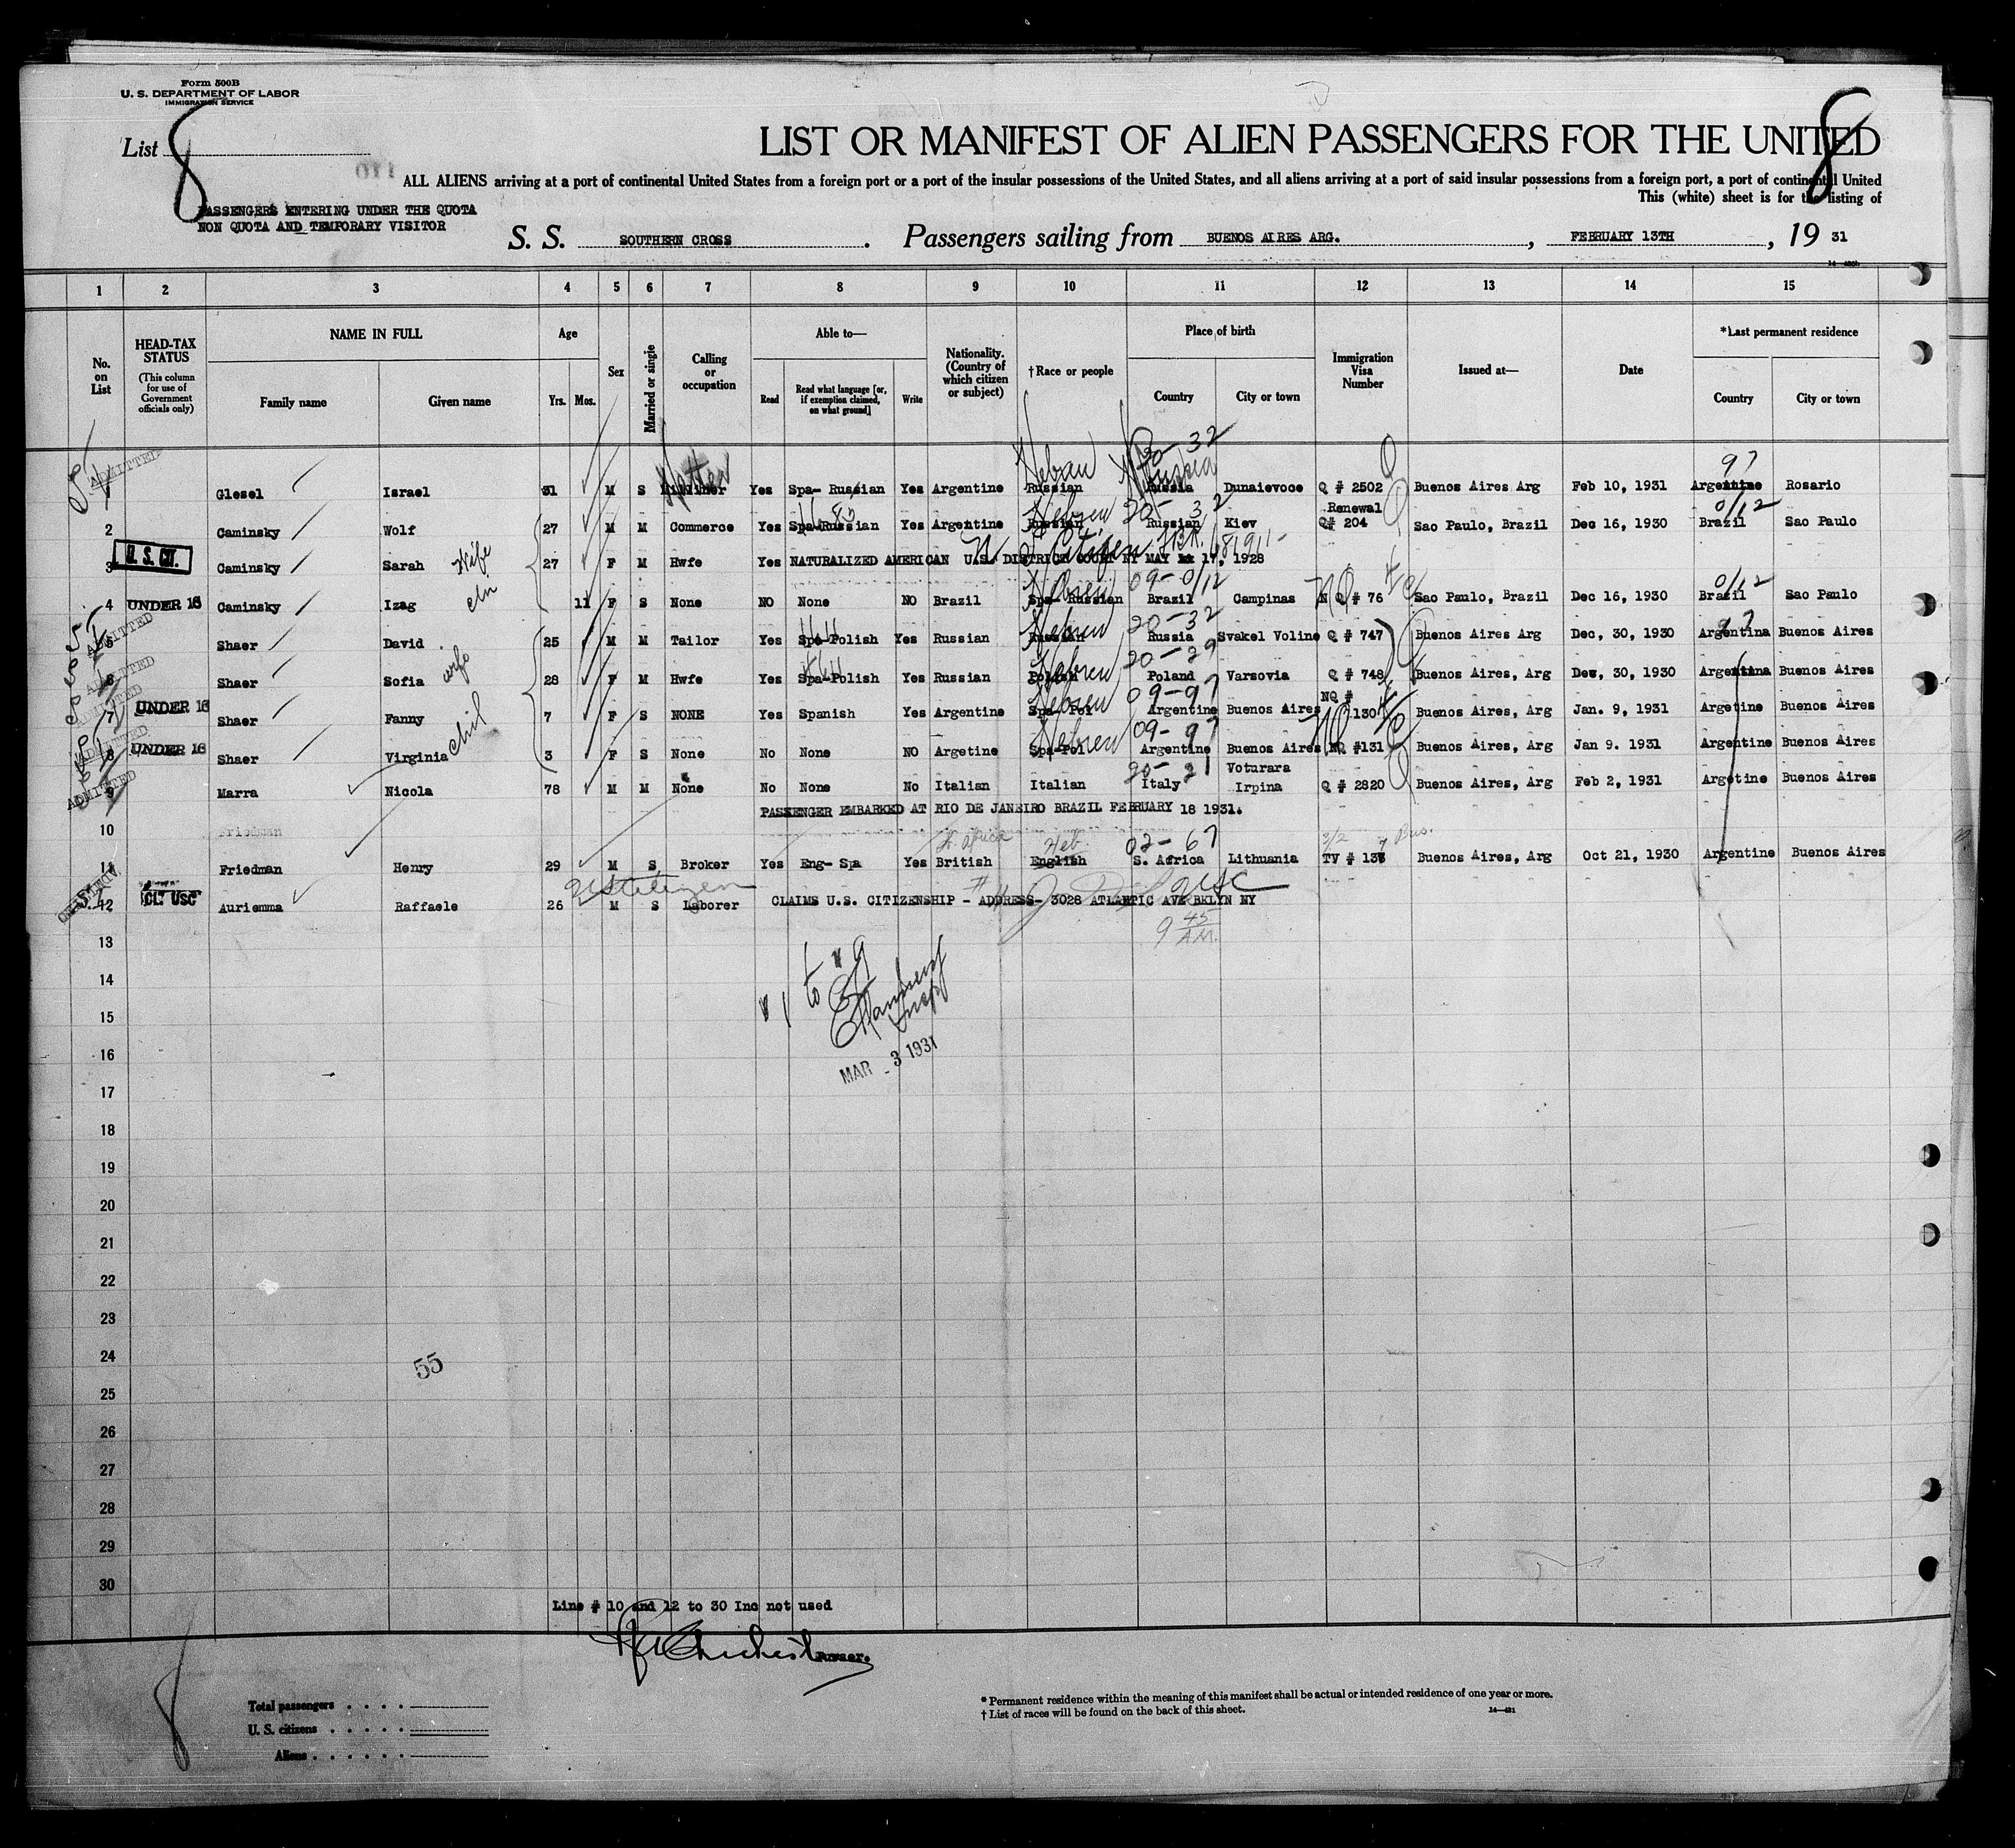 Form 500B
U. S. DEPARTMENT OF LABOR
IMMIGRATION SERVICE
List 8
8
LIST OR MANIFEST OF ALIEN PASSENGERS FOR THE UNITED
110
ALL ALIENS arriving at a port of continental United States from a foreign port or a port of the insular possessions of the United States, and all aliens arriving at a port of said insular possessions from a foreign port, a port of continental United
This (white) sheet is for the listing of
PASSENGERS ENTERING UNDER THE QUOTA
NON QUOTA AND TEMPORARY VISITOR
S. S. SOUTHERN CROSS . Passengers sailing from BUENOS AIRES ARG. , FEBRUARY 13TH , 19 31
1 2 3 4 5 6 7 8 9 10 11 12 13 14 15
No. on List
HEAD-TAX STATUS
(This column for use of Government officials only)
NAME IN FULL
Family name Given name
Age
Yrs. Mos.
Sex
Married or single
Calling or occupation
Able to—
Read Read what language [or, if exemption claimed, on what ground] Write
Nationality. (Country of which citizen or subject)
†Race or people
Place of birth
Country City or town
Immigration Visa Number
Issued at—
Date
*Last permanent residence
Country City or town
ADMITTED Hebrew 20-32 Russia Q 97
1 Glesel Israel 31 M S Yes Spa- Russian Yes Argentine Russian Russia Dunaievoce Q # 2502 Buenos Aires Arg Feb 10, 1931 Argentine Rosario
Hebrew 20-32 Renewal 0/12
2 Caminsky Wolf 27 M M Commerce Yes Spa-Russian Yes Argentine Russian Russian Kiev Q# 204 Sao Paulo, Brazil Dec 16, 1930 Brazil Sao Paulo
U. S. CIT. Wife
3 Caminsky Sarah 27 F M Hwfe Yes NATURALIZED AMERICAN U.S. DISTRICT COURT NY MAY 17, 1928
Hebrew 09-0/12 NQ 0/12
4 UNDER 16 Caminsky Izag 11 F S None NO None NO Brazil Spa- Russian Brazil Campinas N Q # 76 Sao Paulo, Brazil Dec 16, 1930 Brazil Sao Paulo
ADMITTED Hebrew 20-32 97
5 Shaer David 25 M M Tailor Yes Spa-Polish Yes Russian Russian Russia Svakel Voline Q # 747 Buenos Aires Arg Dec, 30, 1930 Argentina Buenos Aires
ADMITTED wife Hebrew 20-29
6 Shaer Sofia 28 F M Hwfe Yes Spa-Polish Yes Russian Polish Poland Varsovia Q # 748 Buenos Aires, Arg Dec, 30, 1930 Argentina Buenos Aires
ADMITTED chil Hebrew 09-97 NQ #
7 UNDER 16 Shaer Fanny 7 F S NONE Yes Spanish Yes Argentine Spa- Pol Argentine Buenos Aires 130 Buenos Aires, Arg Jan. 9, 1931 Argetine Buenos Aires
ADMITTED Hebrew 09-97 NQ
8 UNDER 16 Shaer Virginia 3 F S None No None NO Argetine Spa-Pol Argentine Buenos Aires NQ #131 Buenos Aires, Arg Jan 9. 1931 Argentine Buenos Aires
ADMITTED 20-21 Voturara
9 Marra Nicola 78 M M None No None No Italian Italian Italy Irpina Q # 2820 Buenos Aires, Arg Feb 2, 1931 Argetine Buenos Aires
PASSENGER EMBARKED AT RIO DE JANEIRO BRAZIL FEBRUARY 18 1931.
10 Friedman
S. Africa Heb. 02-67 3/2 Bus.
11 Friedman Henry 29 M S Broker Yes Eng- Spa Yes British English S. Africa Lithuania TV # 137 Buenos Aires, Arg Oct 21, 1930 Argentine Buenos Aires
US Citizen USC
12 CL. USC Auriemma Raffaele 26 M S Laborer CLAIMS U.S. CITIZENSHIP - ADDRESS- 3028 ATLANTIC AVE BKLYN NY
9 45 A.M.
13
14
1 to 9
15
16
MAR - 3 1931
17
18
19
20
21
22
23
24
55
25
26
27
28
29
30
Line # 10 and 12 to 30 Inc not used
Purser.
8
Total passengers
U. S. citizens
Aliens
* Permanent residence within the meaning of this manifest shall be actual or intended residence of one year or more.
† List of races will be found on the back of this sheet.